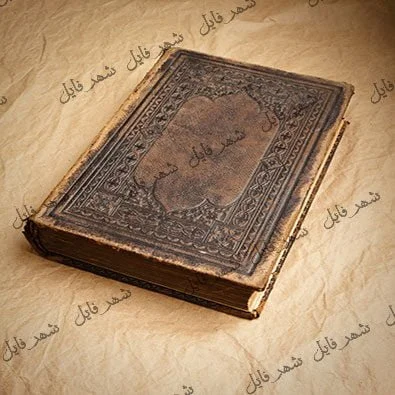 شهر فایل
شهر فایل
شهر فایل
شهر فایل
شهر فایل
شهر فایل
شهر فایل
شهر فایل
شهر فایل
شهر فایل
شهر فایل
شهر فایل